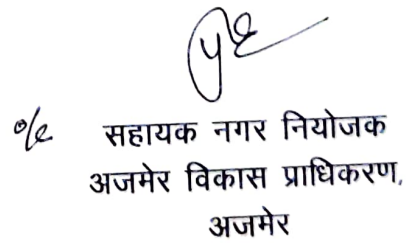 सहायक नगर नियोजक
अजमेर विकास प्राधिकरण,
अजमेर